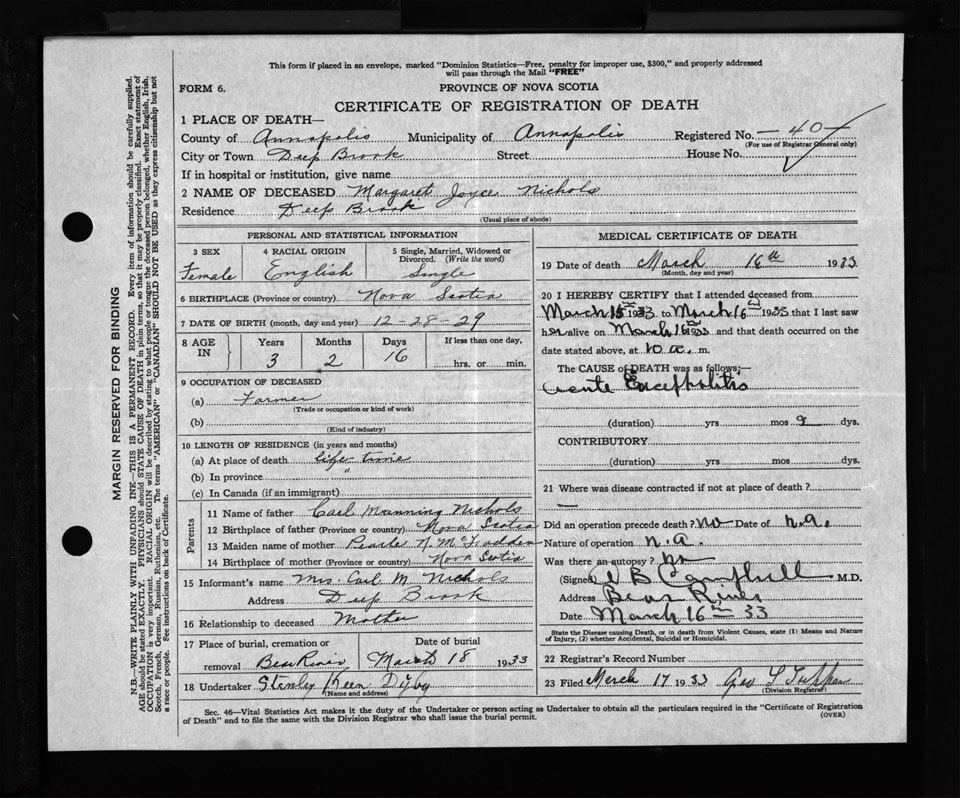 This form if placed in an envelope, marked "Dominion Statistics—Free, penalty for improper use, $300," and properly addressed
will pass through the Mail "FREE"
FORM 6.
PROVINCE OF NOVA SCOTIA
CERTIFICATE OF REGISTRATION OF DEATH
1 PLACE OF DEATH—
County of Annapolis Municipality of Annapolis Registered No. —40—
(For use of Registrar General only)
City or Town Deep Brook Street House No.
If in hospital or institution, give name
2 NAME OF DECEASED Margaret Joyce Nichols
Residence Deep Brook
(Usual place of abode)
PERSONAL AND STATISTICAL INFORMATION
3 SEX 4 RACIAL ORIGIN 5 Single, Married, Widowed or
Divorced. (Write the word)
Female English Single
6 BIRTHPLACE (Province or country) Nova Scotia
7 DATE OF BIRTH (month, day and year) 12-28-29
8 AGE IN Years Months Days If less than one day,
3 2 16 hrs. or min.
9 OCCUPATION OF DECEASED
(a) Farmer
(Trade or occupation or kind of work)
(b)
(Kind of industry)
10 LENGTH OF RESIDENCE (in years and months)
(a) At place of death life-time
(b) In province
(c) In Canada (if an immigrant)
Parents
11 Name of father Carl Manning Nichols
12 Birthplace of father (Province or country) Nova Scotia
13 Maiden name of mother Pearle N. McFadden
14 Birthplace of mother (Province or country) Nova Scotia
15 Informant's name Mrs. Carl M. Nichols
Address Deep Brook
16 Relationship to deceased Mother
17 Place of burial, cremation or Date of burial
removal Bear River March 18 1933
18 Undertaker Stanley Keen Digby
(Name and address)
MEDICAL CERTIFICATE OF DEATH
19 Date of death March 16th 1933
(Month, day and year)
20 I HEREBY CERTIFY that I attended deceased from
March 15th 1933 to March 16th 1933 that I last saw
her alive on March 16 1933 and that death occurred on the
date stated above, at 10 a. m.
The CAUSE of DEATH was as follows:—
Acute Encephalitis
(duration) yrs mos 2 dys.
CONTRIBUTORY
(duration) yrs. mos. dys.
21 Where was disease contracted if not at place of death?
—
Did an operation precede death? no Date of n.a.
Nature of operation n.a.
Was there an autopsy? no
(Signed) B Campbell M.D.
Address Bear River
Date March 16th 33
State the Disease causing Death, or in death from Violent Causes, state (1) Means and Nature
of Injury, (2) whether Accidental, Suicidal or Homicidal.
22 Registrar's Record Number
23 Filed March 17 1933 Geo L Tupper
(Division Registrar)
Sec. 46—Vital Statistics Act makes it the duty of the Undertaker or person acting as Undertaker to obtain all the particulars required in the "Certificate of Registration
of Death" and to file the same with the Division Registrar who shall issue the burial permit.
(OVER)
MARGIN RESERVED FOR BINDING
N.B.—WRITE PLAINLY WITH UNFADING INK—THIS IS A PERMANENT RECORD. Every item of information should be carefully supplied.
AGE should be stated EXACTLY. PHYSICIANS should STATE CAUSE OF DEATH in plain terms, so that it may be properly classified. Exact statement of
OCCUPATION is very important. RACIAL ORIGIN will be described by stating to what people or tongue the deceased person belonged, whether English, Irish,
Scotch, French, German, Russian, Ruthenian, etc. The terms "AMERICAN" or "CANADIAN" SHOULD NOT BE USED as they express citizenship but not
a race or people. See instructions on back of Certificate.